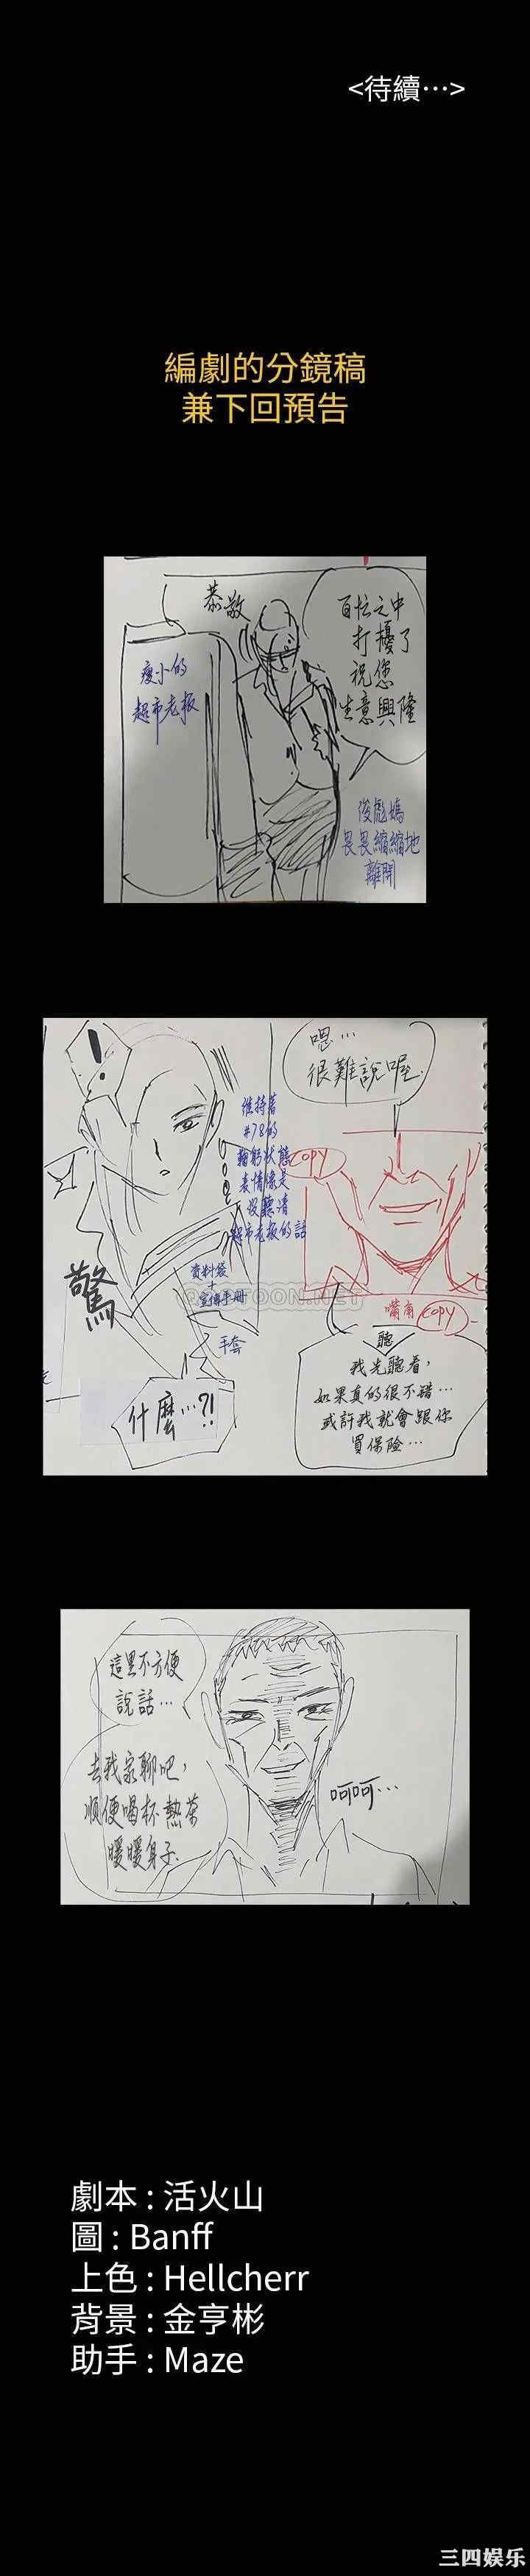 <待續⋯>
編劇的分鏡稿
兼下回預告
恭敬
百忙之中
打擾了
祝您
生意興隆
瘦小的
超市老板
俊彪媽
畏畏縮縮地
離開
嗯…
很難說喔.
!
維持著
#78的
鞠躬狀態
表情像是
沒聽清
超市老板的話
COPY
資料袋
+
宣傳手冊
手套
驚
什麼…?!
嘴角 COPY
聽
我先聽看,
如果真的很不錯…
或許我就會跟你
買保險…
TOON.NET
這里不方便
說話…
去我家聊吧,
順便喝杯熱茶
暖暖身子.
呵呵…
劇本 : 活火山
圖 : Banff
上色 : Hellcherr
背景 : 金亨彬
助手 : Maze
三四娱乐